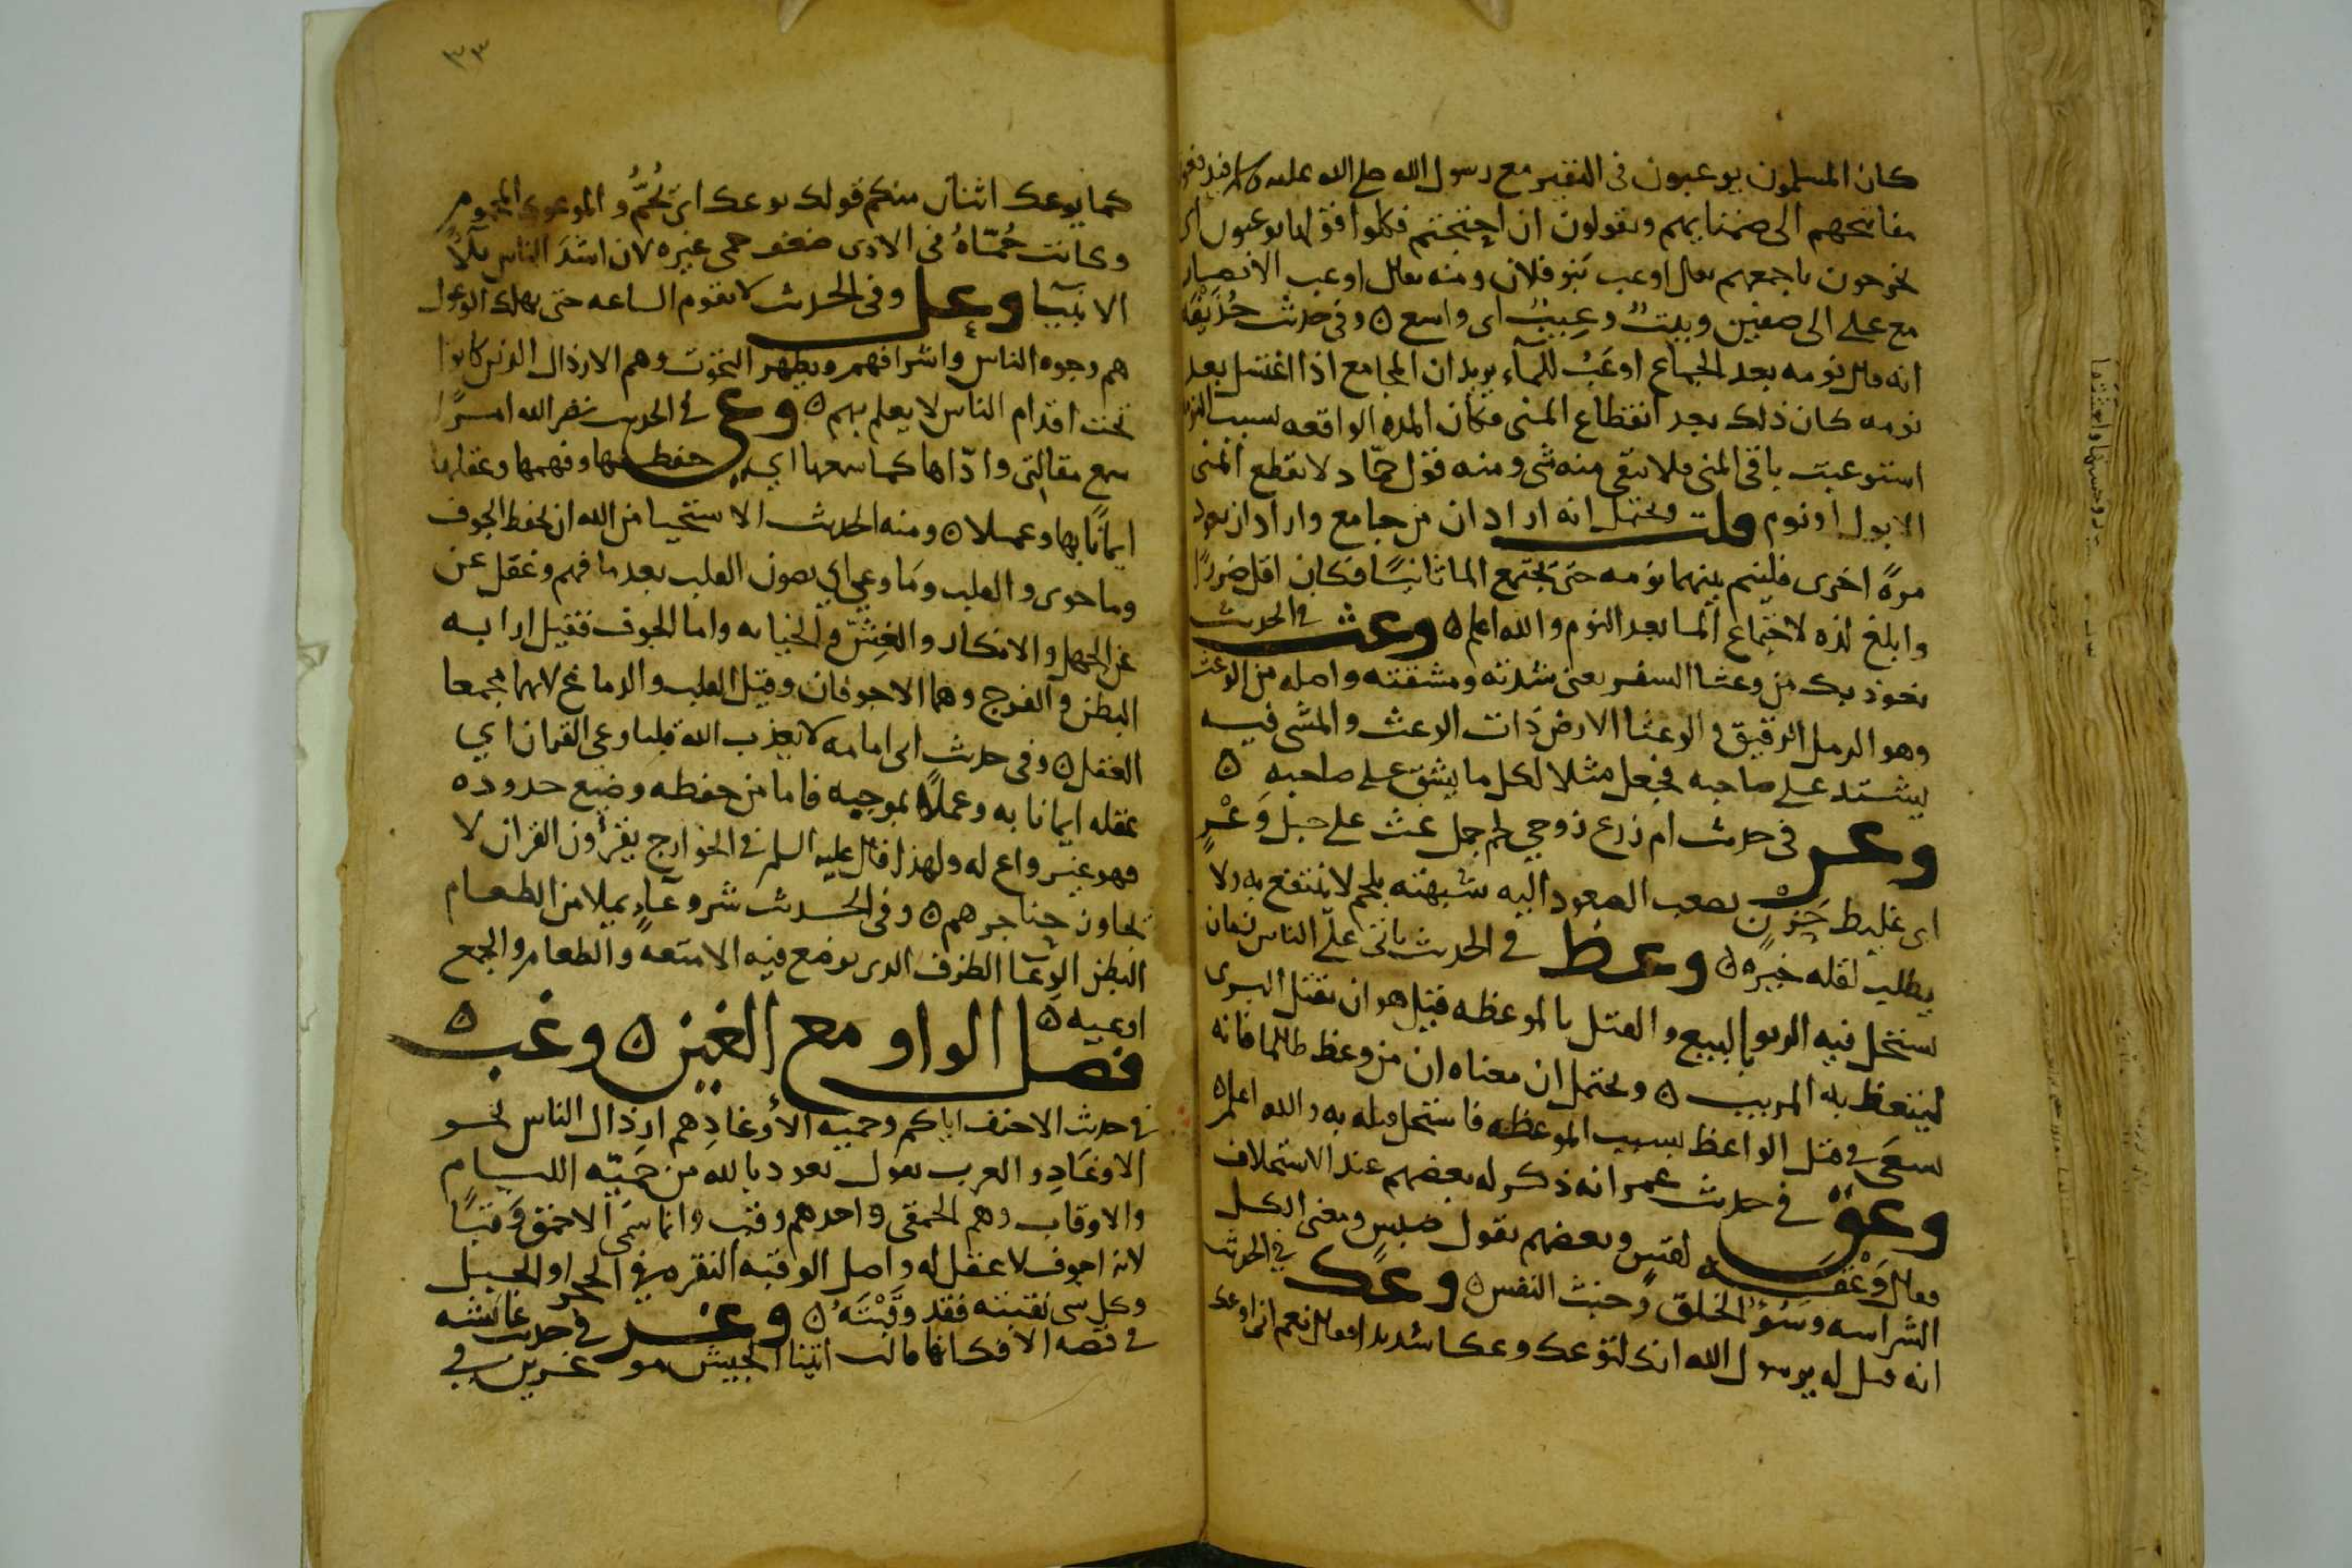 كان المسلمون يوعبون في النفير مع رسول الله صلى الله عليه فيدفعون
مفاتحهم الى ضمنايهم ويقولون ان احتجتم فكلوا فقولها يوعبون اى
يخرجون باجمعهم يقال اوعب بنو فلان ومنه يقال اوعب الانصار
مع على الى صفين وبيت وعيب اى واسع ه وفي حديث حذيفة
انه قال نومه بعد الجماع اوعب للماء يريد ان المجامع اذا اغتسل بعد
نومه كان ذلك بعد انقطاع المنى فكان المده الواقعه بسبب النوم
استوعبت باقي المنى فلا يبقى منه شى ومنه قول حماد لا يقطع المنى
الا بول او نوم قلت ويحتمل انه اراد ان من جامع واراد ان يعود
مرة اخرى فلينم بينهما نومه حتى يجتمع الما ثانيا فكان اقل ضررا
وابلغ لذه لاجتماع الما بعد النوم والله اعلم ه وعث في الحديث
نعوذ بك من وعثا السفر يعنى شدته ومشقته واصله من الوعث
وهو الرمل الرقيق و الوعثا الارض ذات الوعث والمشى فيه
يشتد على صاحبه فجعل مثلا لكل ما يشق على صاحبه ه
وعر في حديث ام زرع زوجي لحم جمل غث على جبل وعر
اى غليظ حزن يصعب الصعود اليه شبهته بلحم لا ينتفع به ولا
يطلب لقله خيره ه وعظ في الحديث ياتى على الناس زمان
يستحل فيه الربو بالبيع والقتل بالموعظه قيل هو ان يقتل البرى
ليتعظ به المريب ه ويحتمل ان معناه ان من وعظ ظالما فانه
يسعى في قتل الواعظ بسبب الموعظه فاستحل قتله به والله اعلم ه
وعق في حديث عمر انه ذكر له بعضهم عند الاستخلاف
فقال وعقه لقيس وبعضهم يقول ضبيس ومعنى الكل
الشراسه وسؤ الخلق وخبث النفس ه وعك في الحديث
انه قيل له يرسول الله انك لتوعك وعكا شديدا فقال نعم انى اوعك
٣٣
كما يوعك اثنان منكم قولك يوعك اى تحم والموعوك المحموم
وكانت حماه في الاذى ضعف حمى غيره لان اشد الناس بلاا
الانبيا وعل وفي الحديث لا تقوم الساعه حتى يهلك الوعول
هم وجوه الناس واشرافهم ويظهر التحوت وهم الارذال الذين كانوا
تحت اقدام الناس لا يعلم بهم ه وعى في الحديث نضر الله امرا
سمع مقالتى واداها كما سمعها اي حفظها وفهمها وعقلها
ايمانا بها وعملا ه ومنه الحديث الاستحيا من الله ان يحفظ الجوف
وما حوى و القلب وما وعى اي يصون القلب بعد ما فهم وعقل عن
عن الجهل والانكار والغش والخيانه واما الجوف فقيل اراد به
البطن و الفرج وهما الاجوفان وقيل القلب والدماغ لانهما مجمعا
العقل ه وفي حديث ابى امامه لا يعذب الله قلبا وعى القران اي
عقله ايمانا به وعملا بموجبه فاما من حفظه وضيع حدوده
فهو غير واع له ولهذا قال عليه السلم في الخوارج يقرؤن القران لا
تجاوز حناجرهم ه وفي الحديث شر وعاء يملا من الطعام
البطن الوعا الظرف الذى يوضع فيه الامتعه والطعام والجمع
اوعيه ه
فصل الواو مع الغين ه وغب ه
في حديث الاحنف اياكم وحميه الاوغاد هم ارذال الناس نحو
الاوغاد والعرب تقول نعوذ بالله من حميه الليام
والاوقاب وهم الحمقى واحدهم وقب وانما سمى الاحمق وقبا
لانه اجوف لا عقل له واصل الوقبه النقره في الحجر او الجبل
وكل شى نقبته فقد وقبته ه وغر في حديث عايشه
في قصه الافك انها قالت اتينا الجيش موغرين في